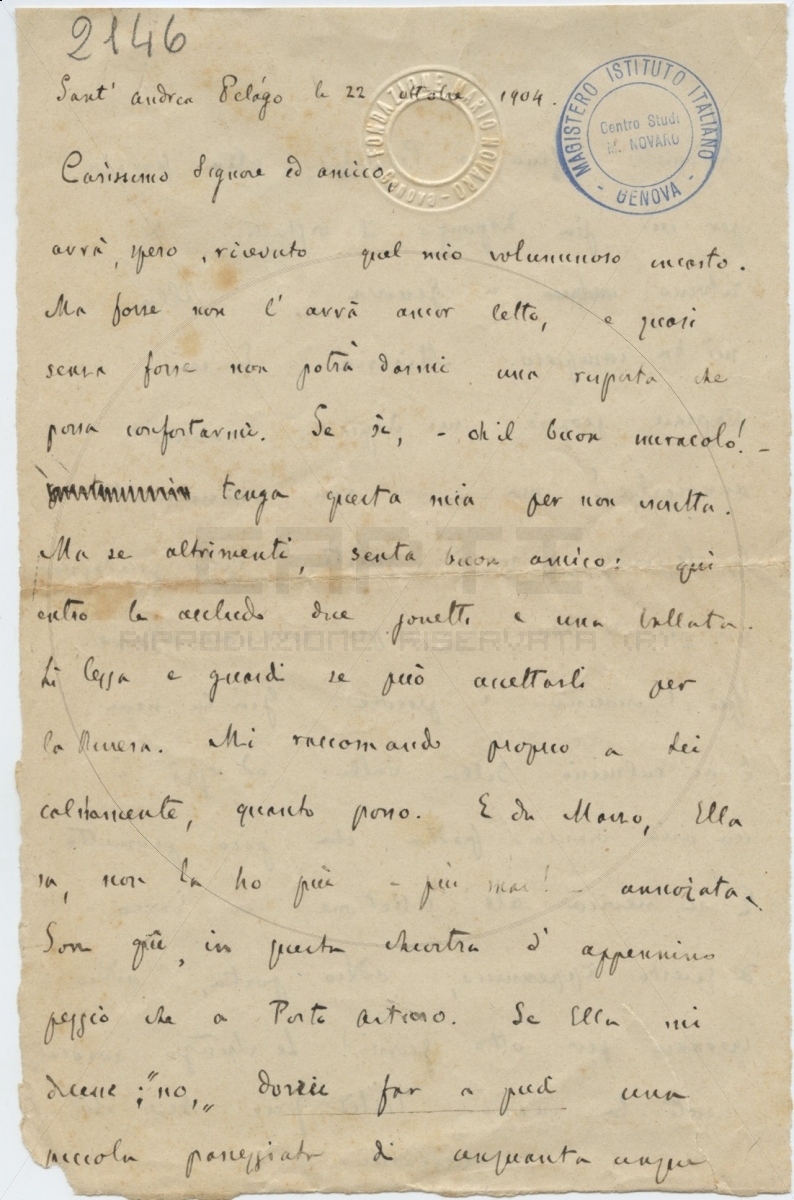 2146
Sant' Andrea Pelágo le 22 ottobre 1904.
FONDAZIONE MARIO NOVARO
MAGISTERO ISTITUTO ITALIANO
Centro Studi
M. NOVARO
- GENOVA -
Carissimo Signore ed amico,
avrà, spero, ricevuto quel mio voluminoso incarto.
Ma forse non l' avrà ancor letto, e quasi
senza forse non potrà darmi una risposta che
possa confortarmi. Se sì, - oh il buon miracolo! -
tenga questa mia per non iscritta.
Ma se altrimenti, senta buon amico: qui
entro le accludo due sonetti e una ballata.
Li legga e guardi se può accettarli per
la Riviera. Mi raccomando proprio a Lei
caldamente, quanto posso. E da Marzo, Ella
sa, non la ho più - più mai! - annoiata.
Son quì, in questa chiostra d' appennino
peggio che a Porto Arturo. Se Ella mi
dicesse: "no," dovrei far a piedi una
piccola passeggiata di cinquanta cinque
RIPRODUZIONE RISERVATA (R)